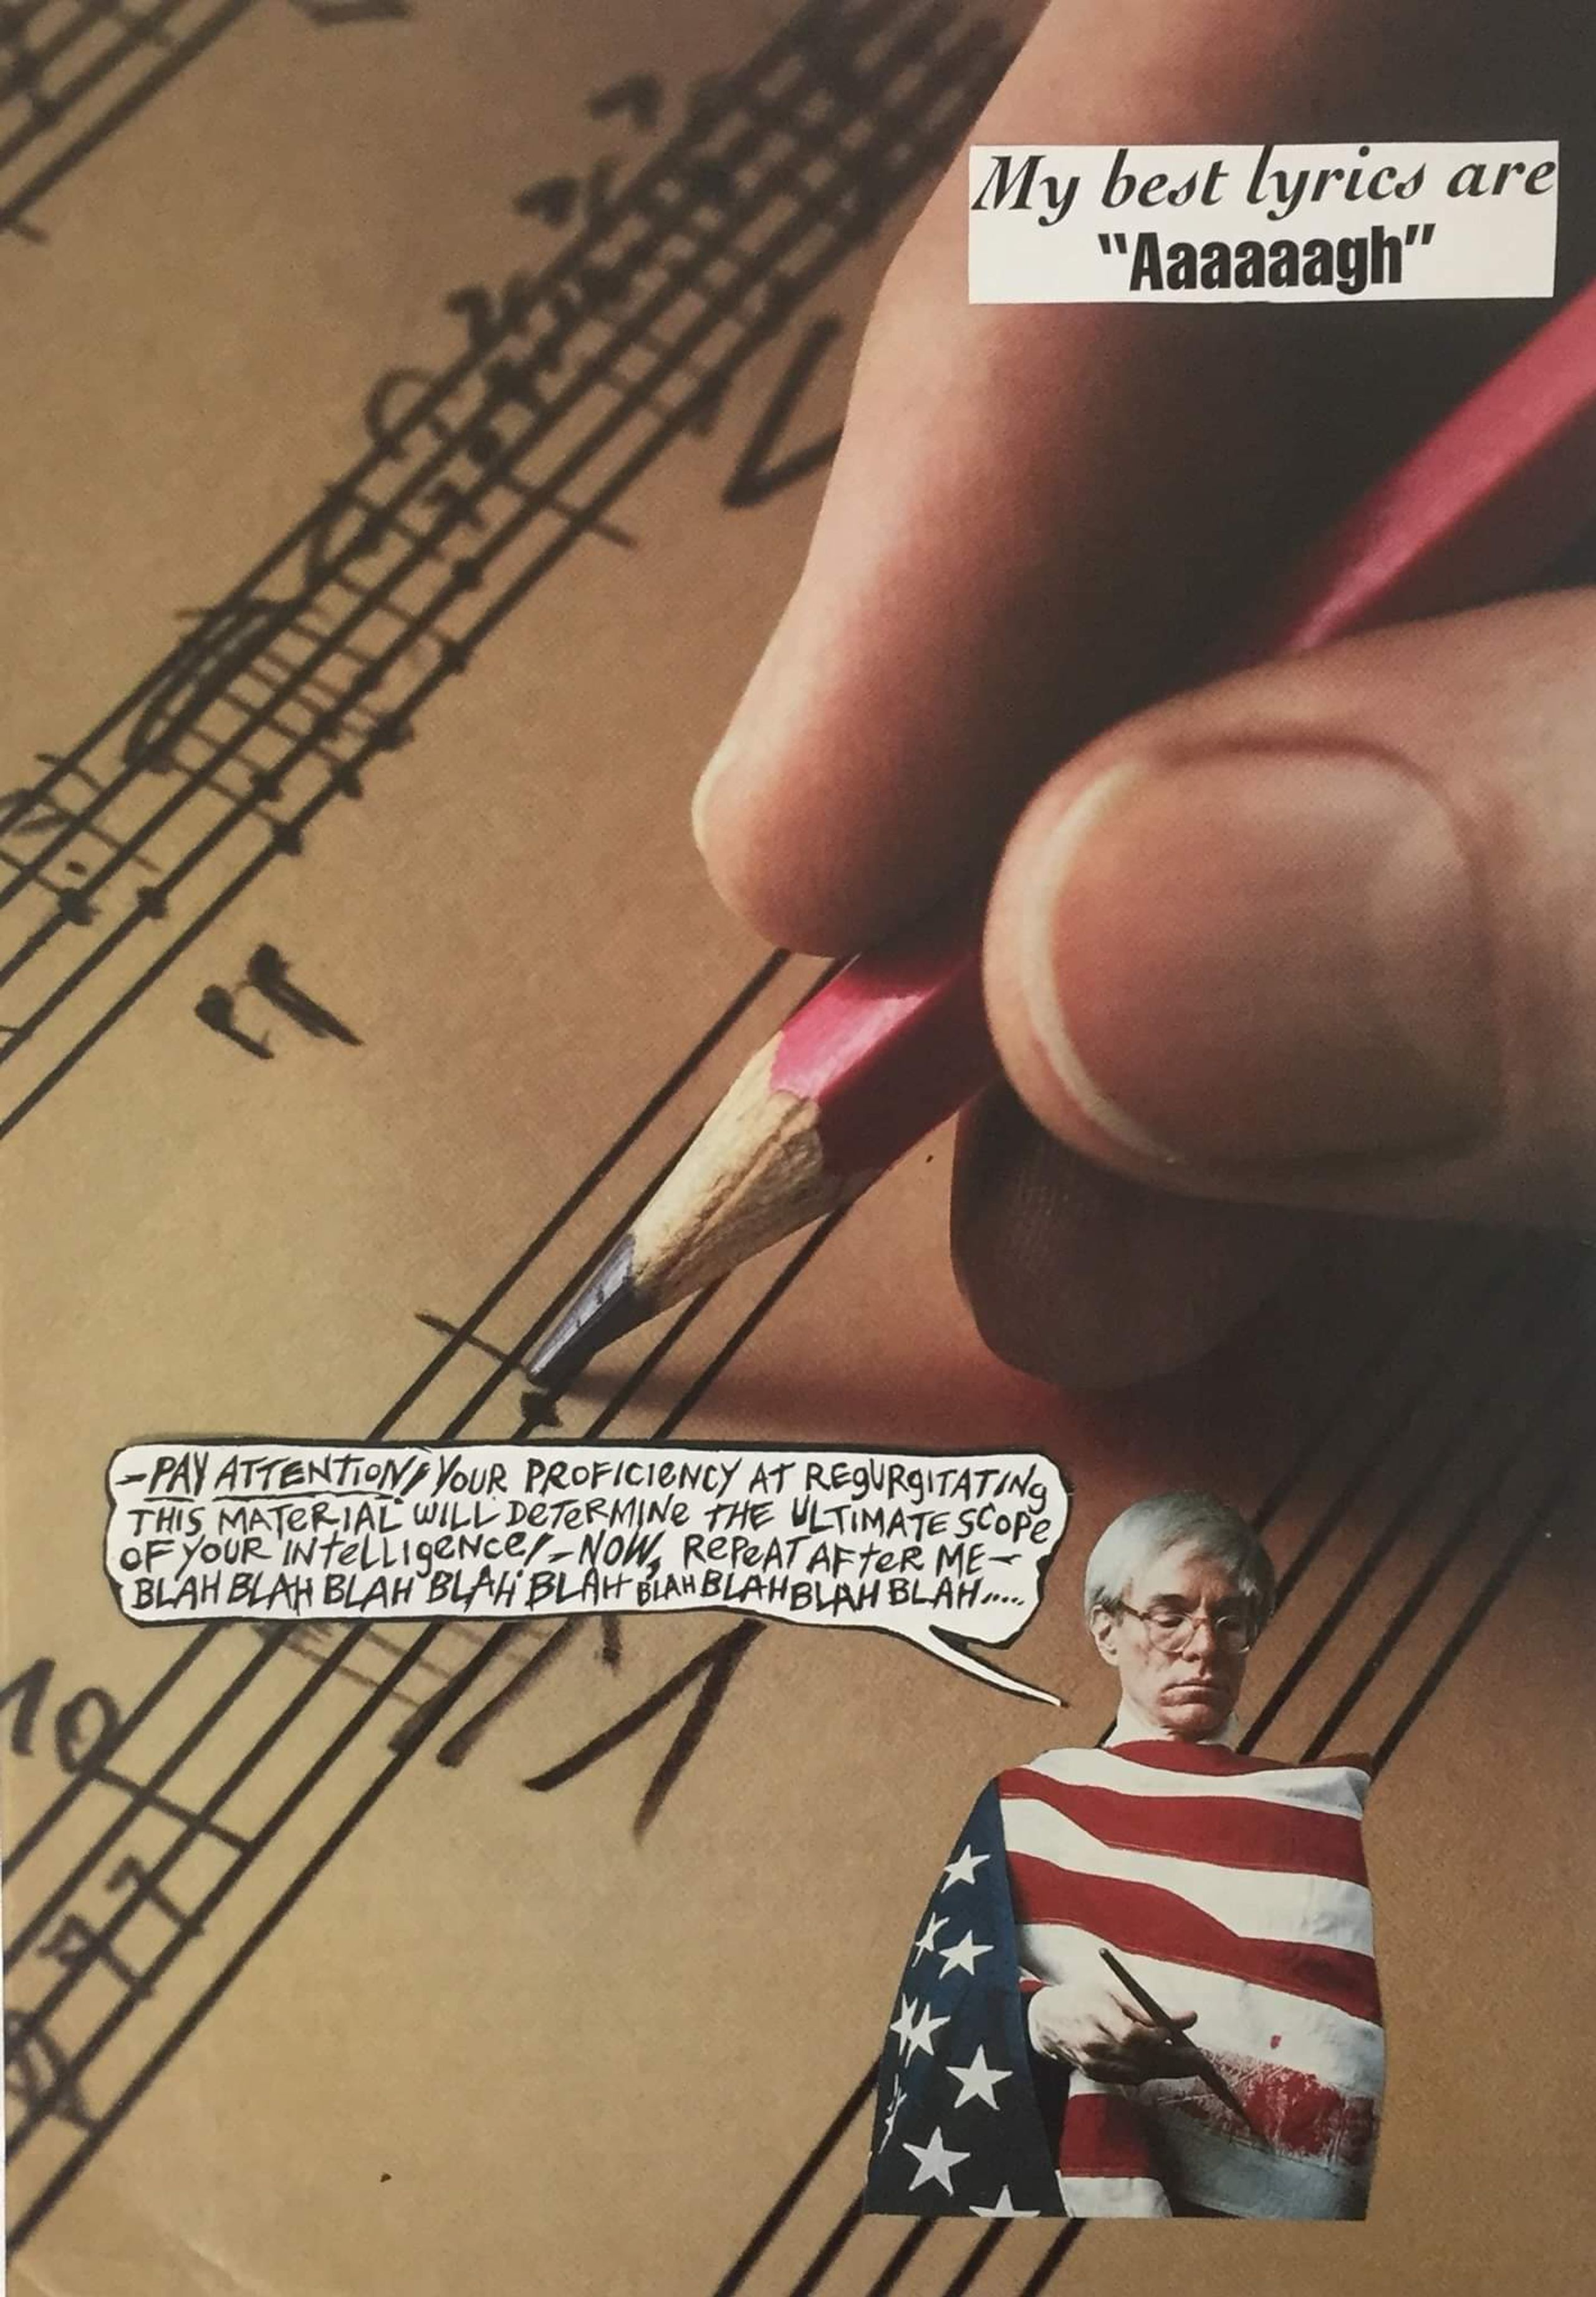 My best lyrics are
"Aaaaaagh"
-PAY ATTENTION! YOUR PROFICIENCY AT REGURGITATING
THIS MATERIAL WILL DETERMINE THE ULTIMATE SCOPE
OF YOUR INTELLIGENCE! - NOW, REPEAT AFTER ME-
BLAH BLAH BLAH BLAH BLAH BLAH BLAH BLAH BLAH.....
10